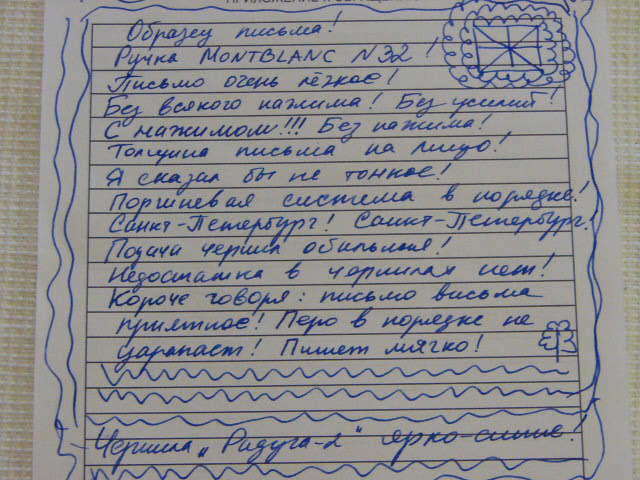 Образец письма!
Ручка MONTBLANC N 32!
Письмо очень лёгкое!
Без всякого нажима! Без усилий!
С нажимом!!! Без нажима!
Толщина письма на лицо!
Я сказал бы не тонкое!
Поршневая система в порядке!
Санкт-Петербург! Санкт-Петербург!
Подача чернил обильная!
Недостатка в чернилах нет!
Короче говоря: письмо висьма
приятное! Перо в порядке не
царапает! Пишет мягко!
Чернила „Радуга-2" ярко-синие!